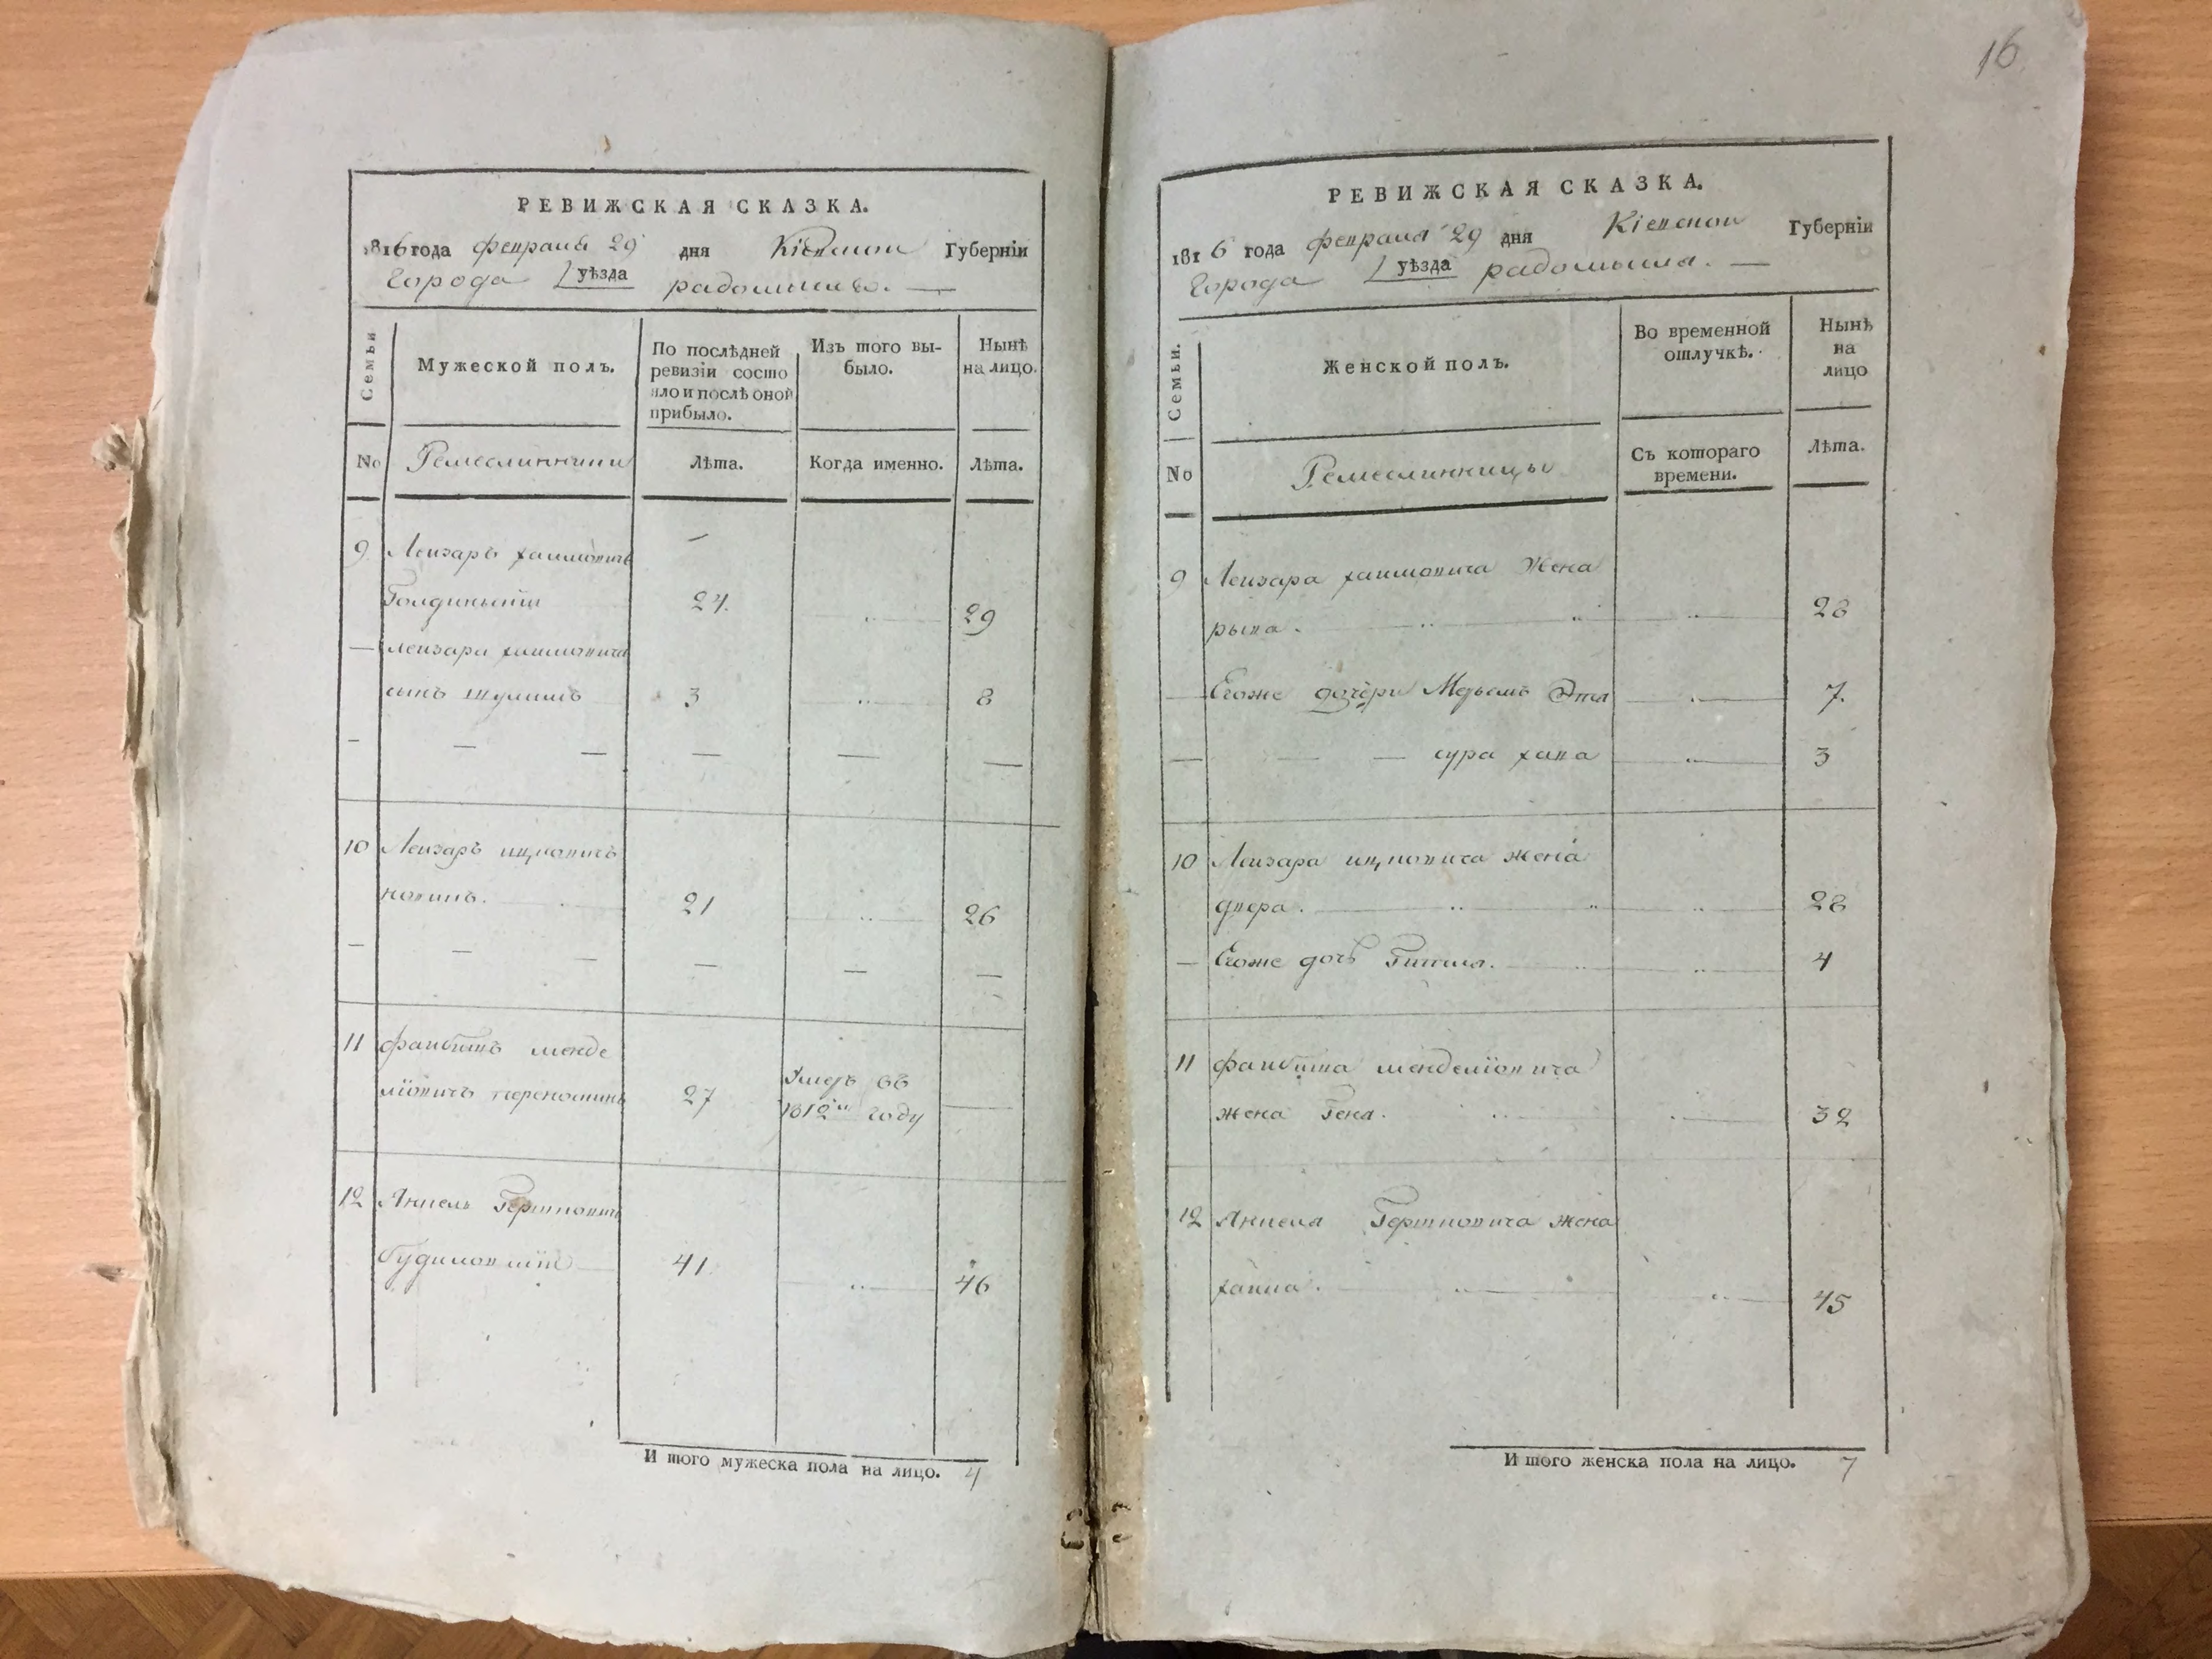 РЕВИЖСКАЯ СКАЗКА.
1816 года февраля 29 дня Кіевской Губерніи
Города уѣзда радомысля. —
Семьи
Мужеской полъ.
По послѣдней ревизіи состояло и послѣ оной прибыло.
Изъ того выбыло.
Нынѣ на лицо.
No Ремесленники Лѣта. Когда именно. Лѣта.
9 Лейзаръ хаимовичъ
24 29
— лейзара хаимовича
сынъ шулимъ 3 8
10 Лейзаръ ицковичъ
21 26
11 файбишъ менде
ліовичъ 27 Умеръ въ 1812м году
12 Янкель Гершковичъ
41 46
И того мужеска пола на лицо. 4
16
РЕВИЖСКАЯ СКАЗКА.
1816 года февраля 29 дня Кіевской Губерніи
Города уѣзда радомысля. —
Семьи.
Женской полъ.
Во временной отлучкѣ.
Нынѣ на лицо
No Ремесленницы Съ котораго времени. Лѣта.
9 Лейзара хаимовича жена
рыва. 28
Егоже дочери Меръемъ Эта 7.
сура хава 3
10 Лейзара ицковича жена
двера. 28
— Егоже дочь Гитля. 4
11 файбиша менделіовича
жена Геня. 32
12 Янкеля Гершковича жена
хайка. 45
И того женска пола на лицо. 7